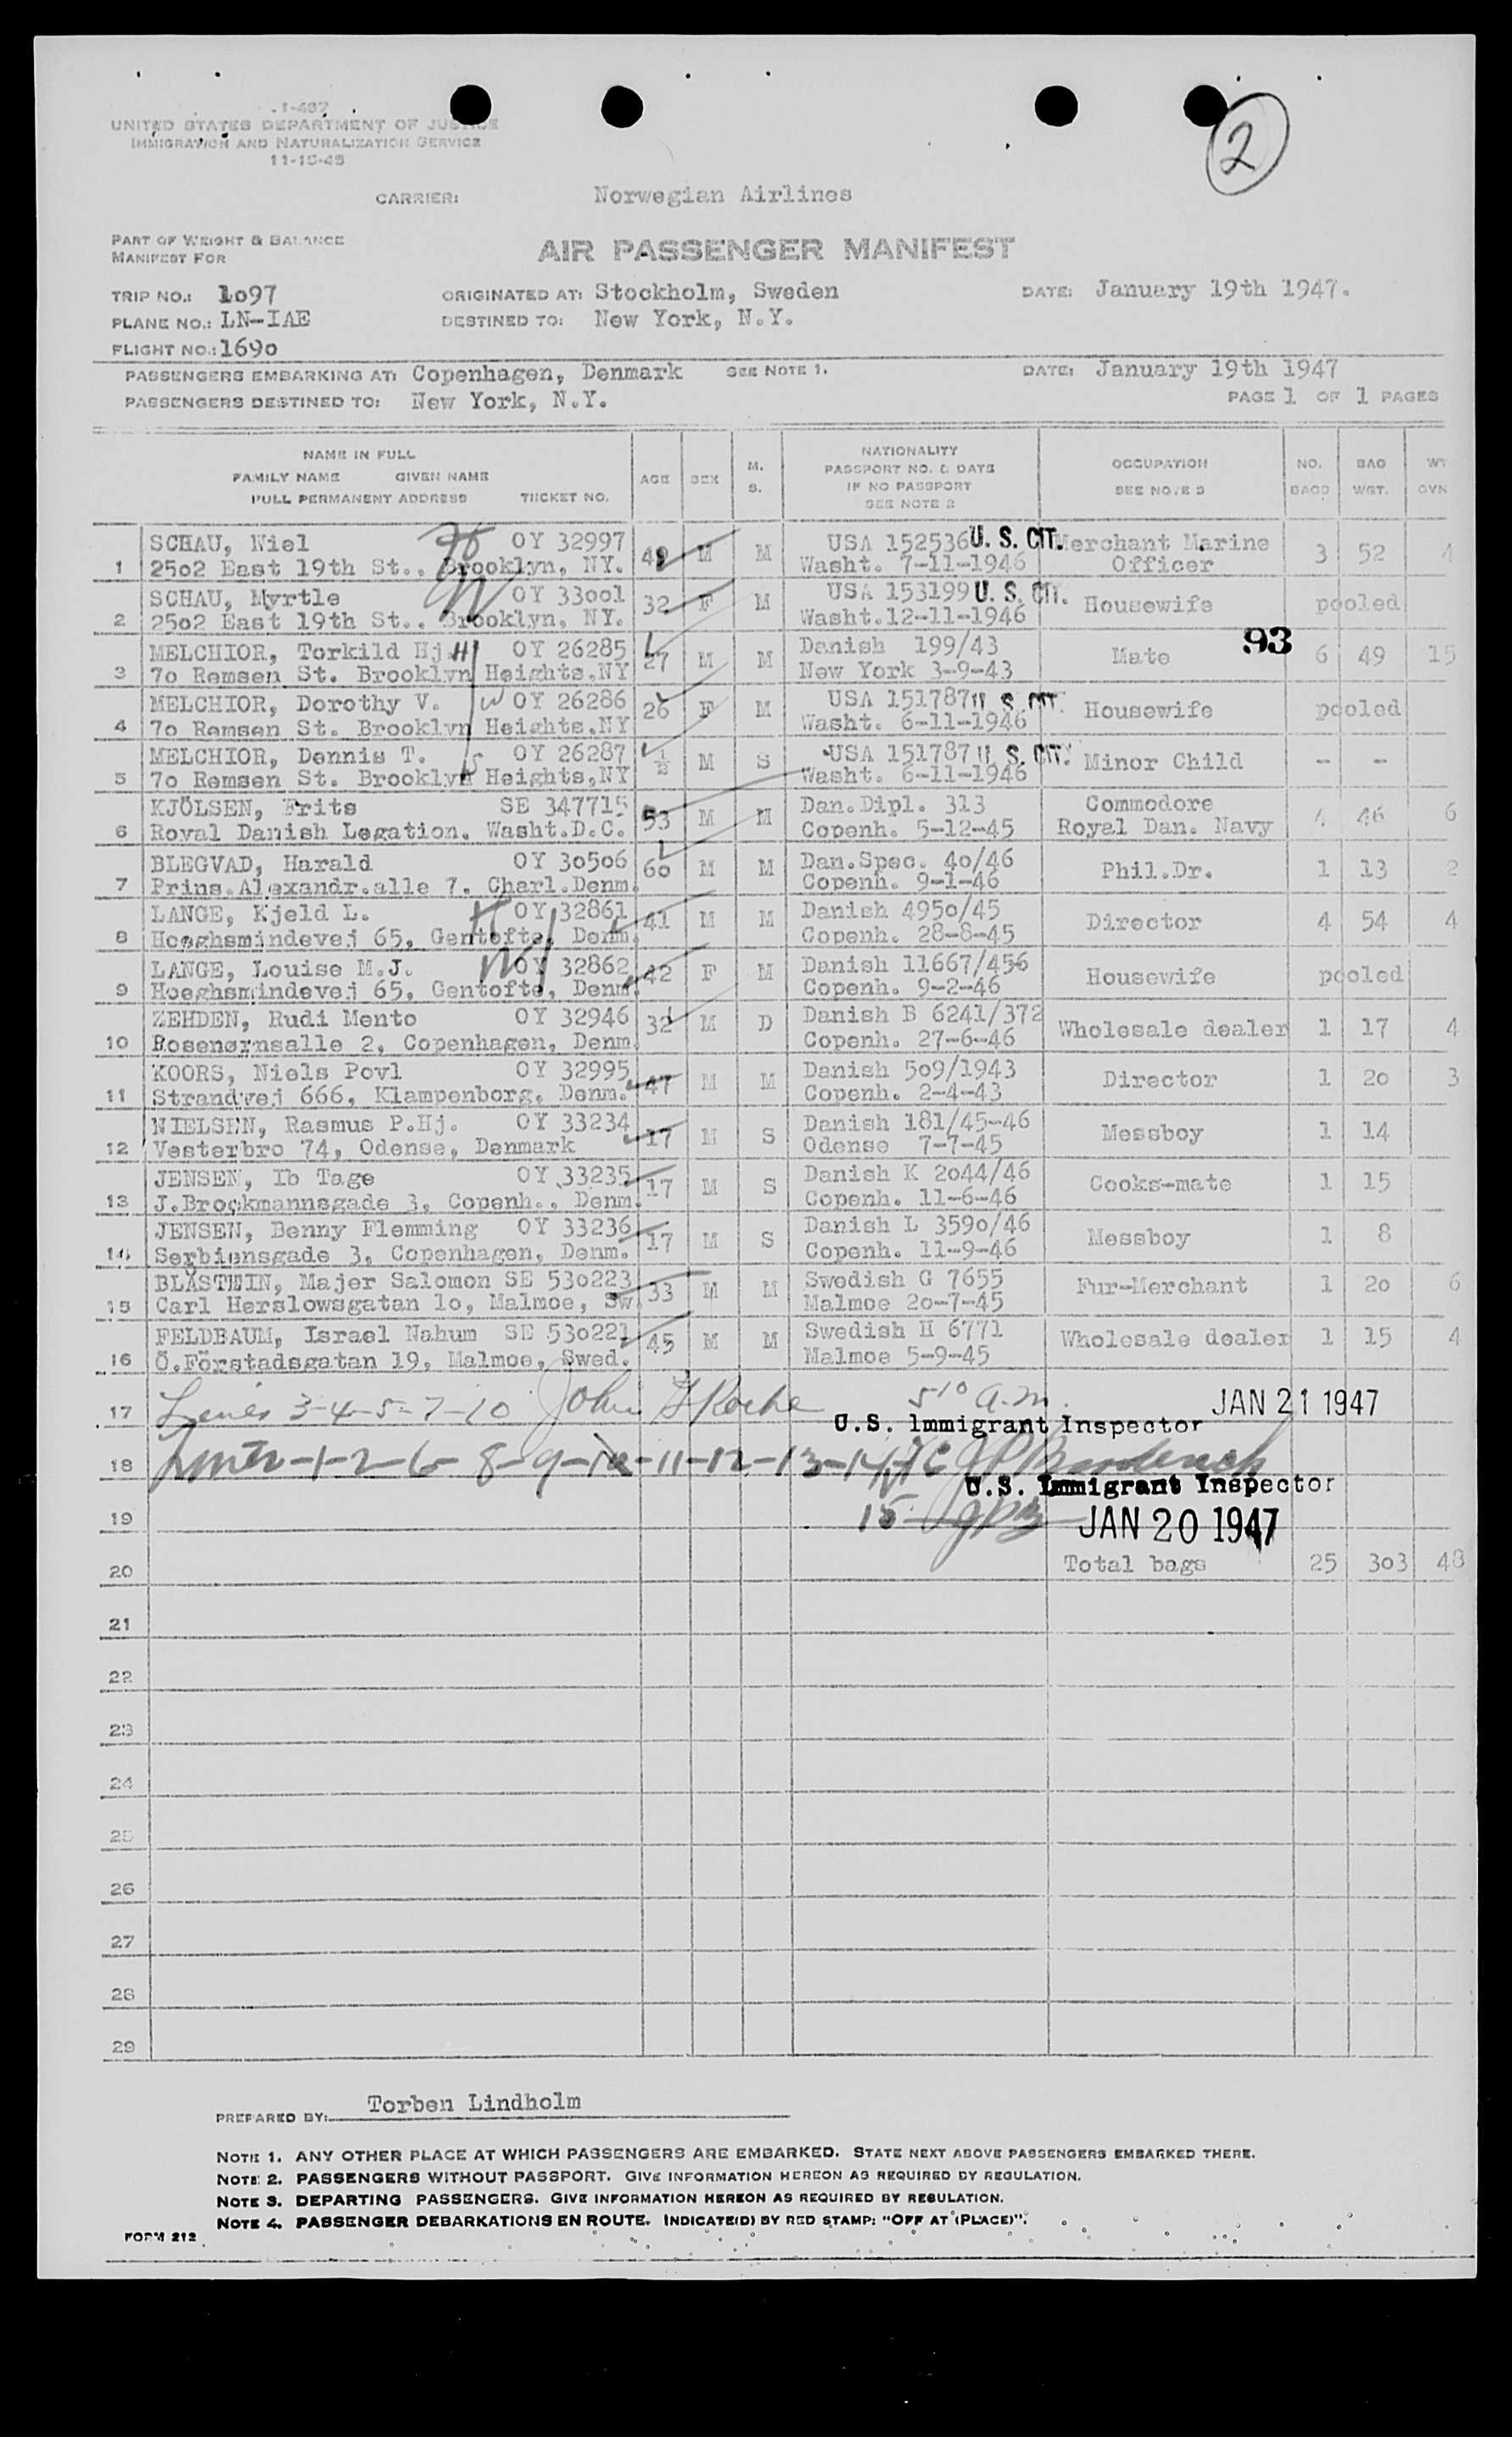 I-467
UNITED STATES DEPARTMENT OF JUSTICE
IMMIGRATION AND NATURALIZATION SERVICE
11-15-45
2
CARRIER: Norwegian Airlines
PART OF WEIGHT & BALANCE
MANIFEST FOR
AIR PASSENGER MANIFEST
TRIP NO.: 1o97 ORIGINATED AT: Stockholm, Sweden DATE: January 19th 1947.
PLANE NO.: LN-IAE DESTINED TO: New York, N.Y.
FLIGHT NO.: 169o
PASSENGERS EMBARKING AT: Copenhagen, Denmark SEE NOTE 1. DATE: January 19th 1947
PASSENGERS DESTINED TO: New York, N.Y. PAGE 1 OF 1 PAGES
NAME IN FULL
FAMILY NAME GIVEN NAME
FULL PERMANENT ADDRESS TICKET NO.
AGE SEX M. S.
NATIONALITY
PASSPORT NO. & DATE
IF NO PASSPORT
SEE NOTE 2
OCCUPATION
SEE NOTE 3
NO. BAGS BAG WGT. WT OVN
SCHAU, Niel OY 32997 USA 152536 U. S. CIT. Merchant Marine
1 25o2 East 19th St., Brooklyn, NY. M M Washt. 7-11-1946 Officer 3 52 4
SCHAU, Myrtle OY 33oo1 32 F M USA 153199 U. S. CIT. Housewife pooled
2 25o2 East 19th St., Brooklyn, NY. Washt.12-11-1946
MELCHIOR, Torkild Hj. H OY 26285 27 M M Danish 199/43 Mate 93 6 49 15
3 7o Remsen St. Brooklyn Heights,NY New York 3-9-43
MELCHIOR, Dorothy V. W OY 26286 26 F M USA 151787 U. S. CIT. Housewife pooled
4 7o Remsen St. Brooklyn Heights,NY Washt. 6-11-1946
MELCHIOR, Dennis T. S OY 26287 1/2 M S USA 151787 U. S. CIT. Minor Child - -
5 7o Remsen St. Brooklyn Heights,NY Washt. 6-11-1946
KJÖLSEN, Frits SE 347715 53 M M Dan.Dipl. 313 Commodore 4 46 6
6 Royal Danish Legation, Washt.D.C. Copenh. 5-12-45 Royal Dan. Navy
BLEGVAD, Harald OY 3o5o6 6o M M Dan.Spec. 4o/46 Phil.Dr. 1 13 2
7 Prins.Alexandr.alle 7, Charl.Denm. Copenh. 9-1-46
LANGE, Kjeld L. H OY 32861 41 M M Danish 495o/45 Director 4 54 4
8 Hoeghsmindevej 65, Gentofte, Denm. Copenh. 28-8-45
LANGE, Louise M.J. W OY 32862 42 F M Danish 11667/456 Housewife pooled
9 Hoeghsmindevej 65, Gentofte, Denm. Copenh. 9-2-46
ZEHDEN, Rudi Mento OY 32946 32 M D Danish B 6241/372 Wholesale dealer 1 17 4
10 Rosenørnsalle 2, Copenhagen, Denm. Copenh. 27-6-46
KOORS, Niels Povl OY 32995 47 M M Danish 5o9/1943 Director 1 2o 3
11 Strandvej 666, Klampenborg, Denm. Copenh. 2-4-43
NIELSEN, Rasmus P.Hj. OY 33234 17 M S Danish 181/45-46 Messboy 1 14
12 Vesterbro 74, Odense, Denmark Odense 7-7-45
JENSEN, Ib Tage OY 33235 17 M S Danish K 2o44/46 Cooks-mate 1 15
13 J.Brockmannsgade 3, Copenh., Denm. Copenh. 11-6-46
JENSEN, Benny Flemming OY 33236 17 M S Danish L 359o/46 Messboy 1 8
14 Serbiensgade 3, Copenhagen, Denm. Copenh. 11-9-46
BLÅSTEIN, Majer Salomon SE 53o223 33 M M Swedish G 7655 Fur-Merchant 1 2o 6
15 Carl Herslowsgatan 1o, Malmoe, Sw. Malmoe 2o-7-45
FELDBAUM, Israel Nahum SE 53o221 45 M M Swedish H 6771 Wholesale dealer 1 15 4
16 Ö.Förstadsgatan 19, Malmoe, Swed. Malmoe 5-9-45
17 Lines 3-4-5-7-10 John F Roche 5 10 a.m. JAN 21 1947
U.S. Immigrant Inspector
18 Lines-1-2-6-8-9-10-11-12-13-14-16
U.S. Immigrant Inspector
19 15 JAN 20 1947
20 Total bags 25 3o3 48
21
22
23
24
25
26
27
28
29
PREPARED BY: Torben Lindholm
NOTE 1. ANY OTHER PLACE AT WHICH PASSENGERS ARE EMBARKED. STATE NEXT ABOVE PASSENGERS EMBARKED THERE.
NOTE 2. PASSENGERS WITHOUT PASSPORT. GIVE INFORMATION HEREON AS REQUIRED BY REGULATION.
NOTE 3. DEPARTING PASSENGERS. GIVE INFORMATION HEREON AS REQUIRED BY REGULATION.
NOTE 4. PASSENGER DEBARKATIONS EN ROUTE. INDICATE(D) BY RED STAMP: "OFF AT (PLACE)".
FORM 212